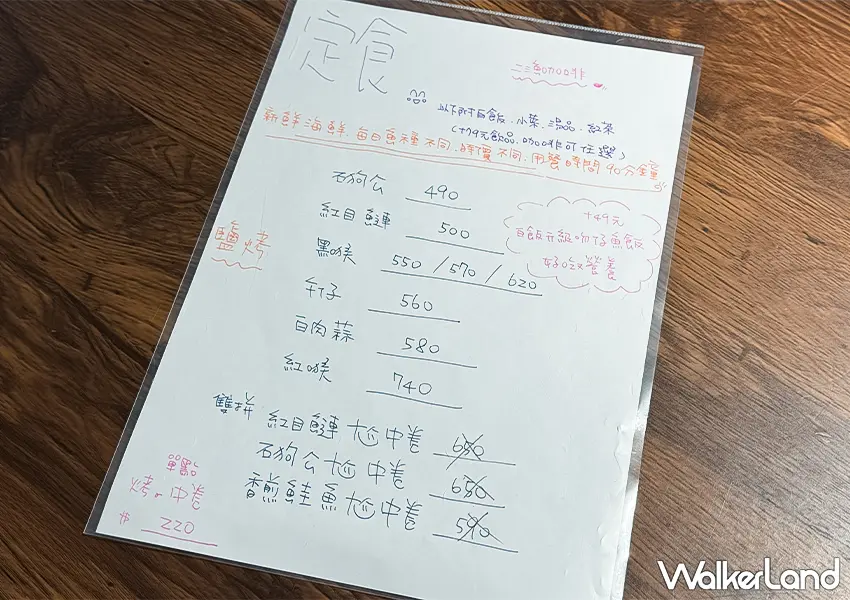 定食
二三魚咖啡
以下所有白飯、小菜、湯品、紅茶
(+79元飲品、咖啡可任選)
新鮮海鮮．每日魚種不同．時價不同．用餐時間90分鐘
石狗公 490
紅目鰱 500
+49元
白飯升級吻仔魚飯
好吃營養
鹽烤
黑喉 550/570/620
午仔 560
白肉蒜 580
紅喉 740
雙拼 紅目鰱 尬 中卷 650
石狗公 尬 中卷 650
香煎鮭魚 尬 中卷 590
單點
烤。中卷
$ 220
WalkerLand